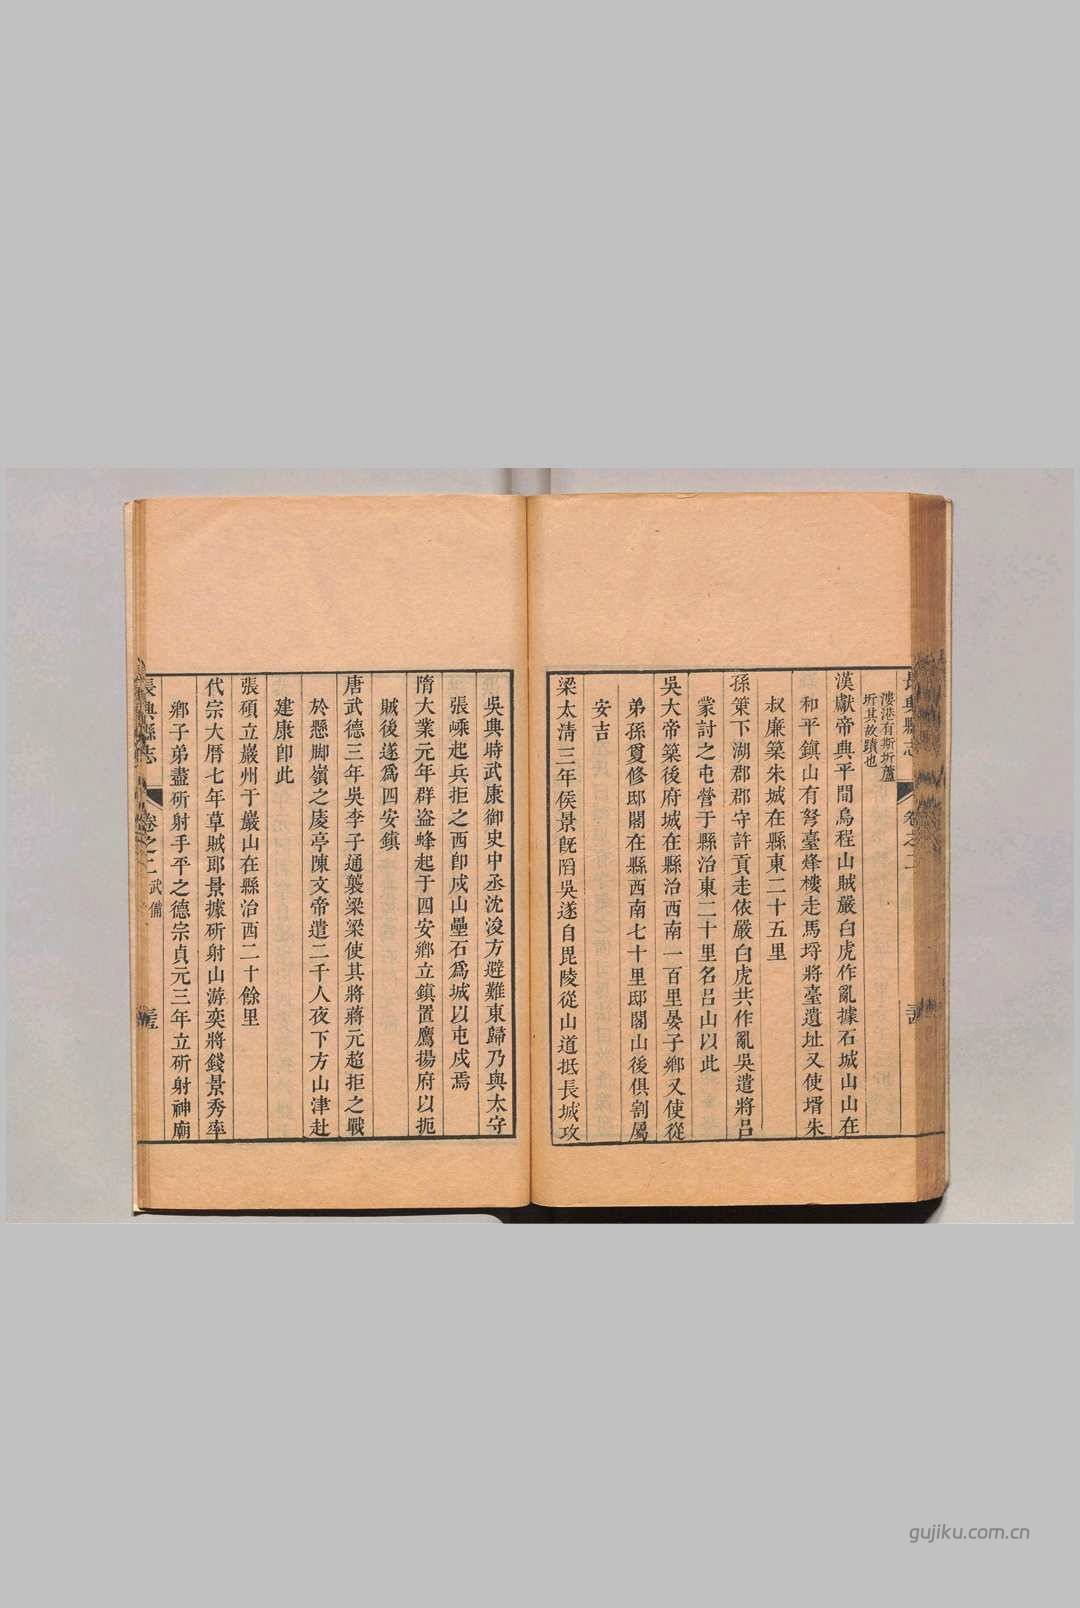 長興縣志
卷之二
漊港有斯圻蘆
圻其故蹟也
漢獻帝興平間烏程山賊嚴白虎作亂據石城山山在
和平鎮山有弩臺烽樓走馬埒將臺遺址又使壻朱
叔廉築朱城在縣東二十五里
孫策下湖郡郡守許貢走依嚴白虎共作亂吳遣將呂
蒙討之屯營于縣治東二十里名呂山以此
吳大帝築後府城在縣治西南一百里晏子鄉又使從
弟孫夐修邸閣在縣西南七十里邸閣山後俱割屬
安吉
梁太清三年侯景既陷吳遂自毘陵從山道抵長城攻
吳興時武康御史中丞沈浚方避難東歸乃與太守
張嵊起兵拒之西卽戍山壘石爲城以屯戍焉
隋大業元年群盜蜂起于四安鄉立鎮置鷹揚府以扼
賊後遂爲四安鎮
唐武德三年吳李子通襲梁梁使其將蔣元超拒之戰
於懸脚嶺之庱亭陳文帝遣二千人夜下方山津赴
建康卽此
張碩立巖州于巖山在縣治西二十餘里
代宗大曆七年草賊郎景據斫射山游奕將錢景秀率
鄉子弟盡斫射手平之德宗貞元三年立斫射神廟
長興縣志
卷之二 武備
gujiku.com.cn